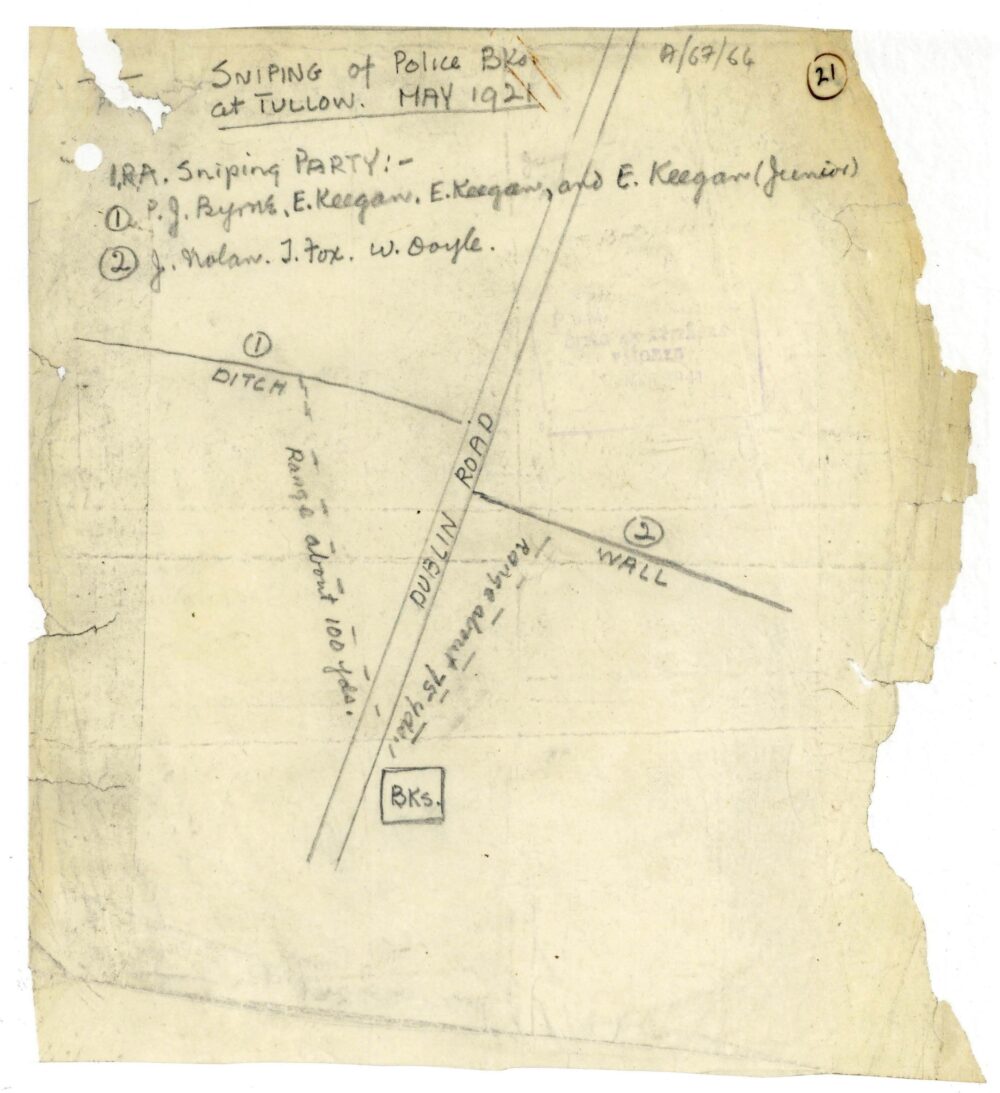 SNIPING of Police BKs.
at TULLOW. MAY 1921
A/67/66
21
I.R.A. Sniping PARTY:-
① P.J. Byrne, E. Keegan, E. Keegan, and E. Keegan (Junior)
② J. Nolan. J. Fox. W. Doyle.
①
DITCH
Range about 100 yds.
DUBLIN ROAD
②
WALL
Range about 75 yds.
BKs.